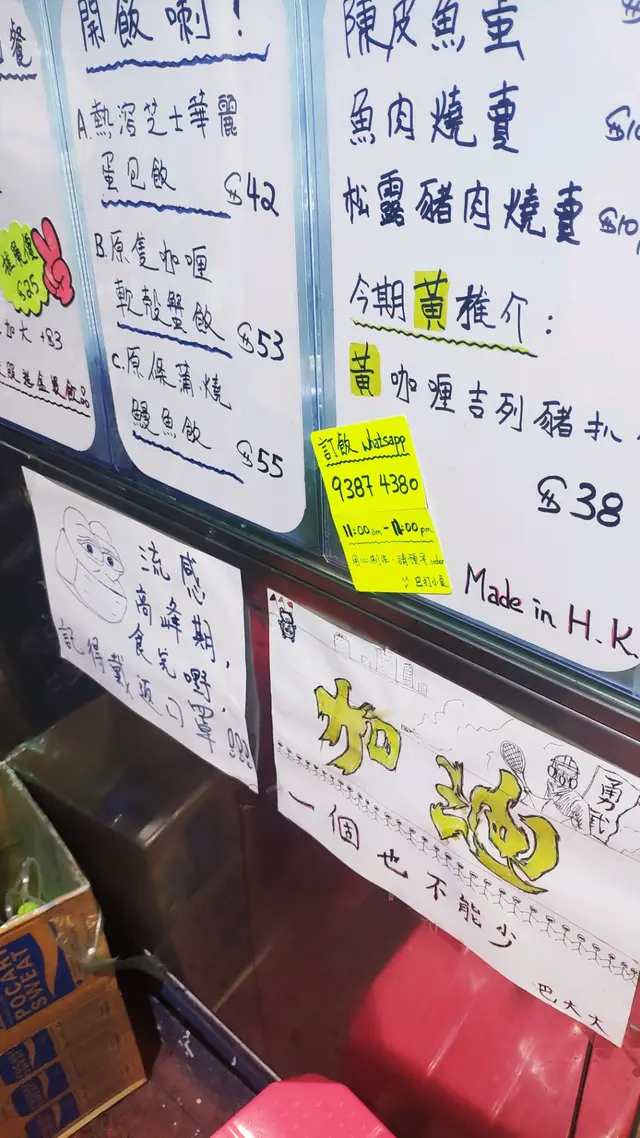 餐
$25
加大 +$3
開飯喇!
A.熱瀉芝士華麗
蛋包飯 $42
B.原隻咖喱
軟殼蟹飯 $53
C.原條蒲燒
鰻魚飯 $55
陳皮魚蛋
魚肉燒賣
松露豬肉燒賣 $10
今期黃推介:
黃咖喱吉列豬扒
$38
Made in H.K.
訂飯 Whatsapp
9387 4380
11:00am-11:00pm
order
流感
高峰期,
食完嘢,
記得戴返口罩!!!
加油
勇武
一個也不能少
巴大大
POCARI
SWEAT